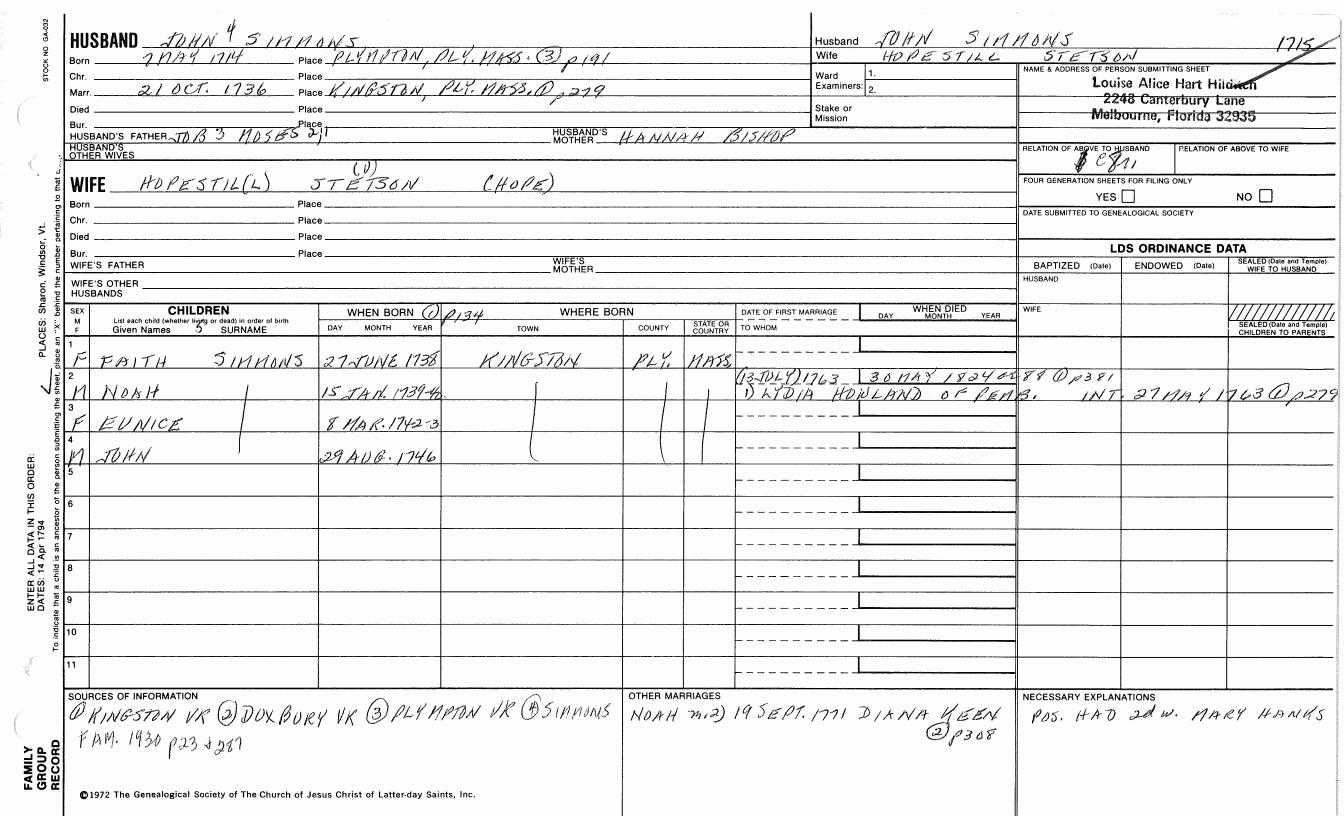 STOCK NO. GA-032
HUSBAND JOHN 4 SIMMONS
Born 7 MAY 1714 Place PLYMPTON, PLY. MASS. (3) p191
Chr. Place
Marr. 21 OCT. 1736 Place KINGSTON, PLY. MASS. (1) p279
Died Place
Bur. Place
HUSBAND'S FATHER JOB 3 MOSES 2, 1 HUSBAND'S MOTHER HANNAH BISHOP
HUSBAND'S OTHER WIVES
(1)
WIFE HOPESTIL(L) STETSON (HOPE)
Born Place
Chr. Place
Died Place
Bur. Place
WIFE'S FATHER WIFE'S MOTHER
WIFE'S OTHER HUSBANDS
Husband JOHN SIMMONS 1715
Wife HOPESTILL STETSON
Ward Examiners: 1. 2.
Stake or Mission
NAME & ADDRESS OF PERSON SUBMITTING SHEET
Louise Alice Hart Hildreth
2248 Canterbury Lane
Melbourne, Florida 32935
RELATION OF ABOVE TO HUSBAND RELATION OF ABOVE TO WIFE
FOUR GENERATION SHEETS FOR FILING ONLY
YES NO
DATE SUBMITTED TO GENEALOGICAL SOCIETY
LDS ORDINANCE DATA
BAPTIZED (Date) ENDOWED (Date) SEALED (Date and Temple) WIFE TO HUSBAND
HUSBAND
WIFE
SEALED (Date and Temple) CHILDREN TO PARENTS
SEX M F CHILDREN WHEN BORN (1) p134 WHERE BORN DATE OF FIRST MARRIAGE WHEN DIED
List each child (whether living or dead) in order of birth
Given Names 5 SURNAME DAY MONTH YEAR TOWN COUNTY STATE OR COUNTRY TO WHOM DAY MONTH YEAR
1 F FAITH SIMMONS 27 JUNE 1738 KINGSTON PLY. MASS.
2 (13 JULY) 1763 30 MAY 1824 ae 88 (1) p381
M NOAH 15 JAN. 1739-40 1) LYDIA HOWLAND OF PEMB. INT. 27 MAY 1763 (1) p279
3 F EUNICE 8 MAR. 1742-3
4 M JOHN 29 AUG. 1746
5
6
7
8
9
10
11
SOURCES OF INFORMATION
(1) KINGSTON VR (2) DUXBURY VR (3) PLYMPTON VR (4) SIMMONS
FAM. 1930 p23 & 287
OTHER MARRIAGES
NOAH m. 2) 19 SEPT. 1771 DIANA KEEN
(2) p308
NECESSARY EXPLANATIONS
POS. HAD 2d w. MARY HANKS
©1972 The Genealogical Society of The Church of Jesus Christ of Latter-day Saints, Inc.
FAMILY GROUP RECORD
ENTER ALL DATA IN THIS ORDER:
DATES: 14 Apr 1794
PLACES: Sharon, Windsor, Vt.
To indicate that a child is an ancestor of the person submitting the sheet, place an "X" behind the number pertaining to that